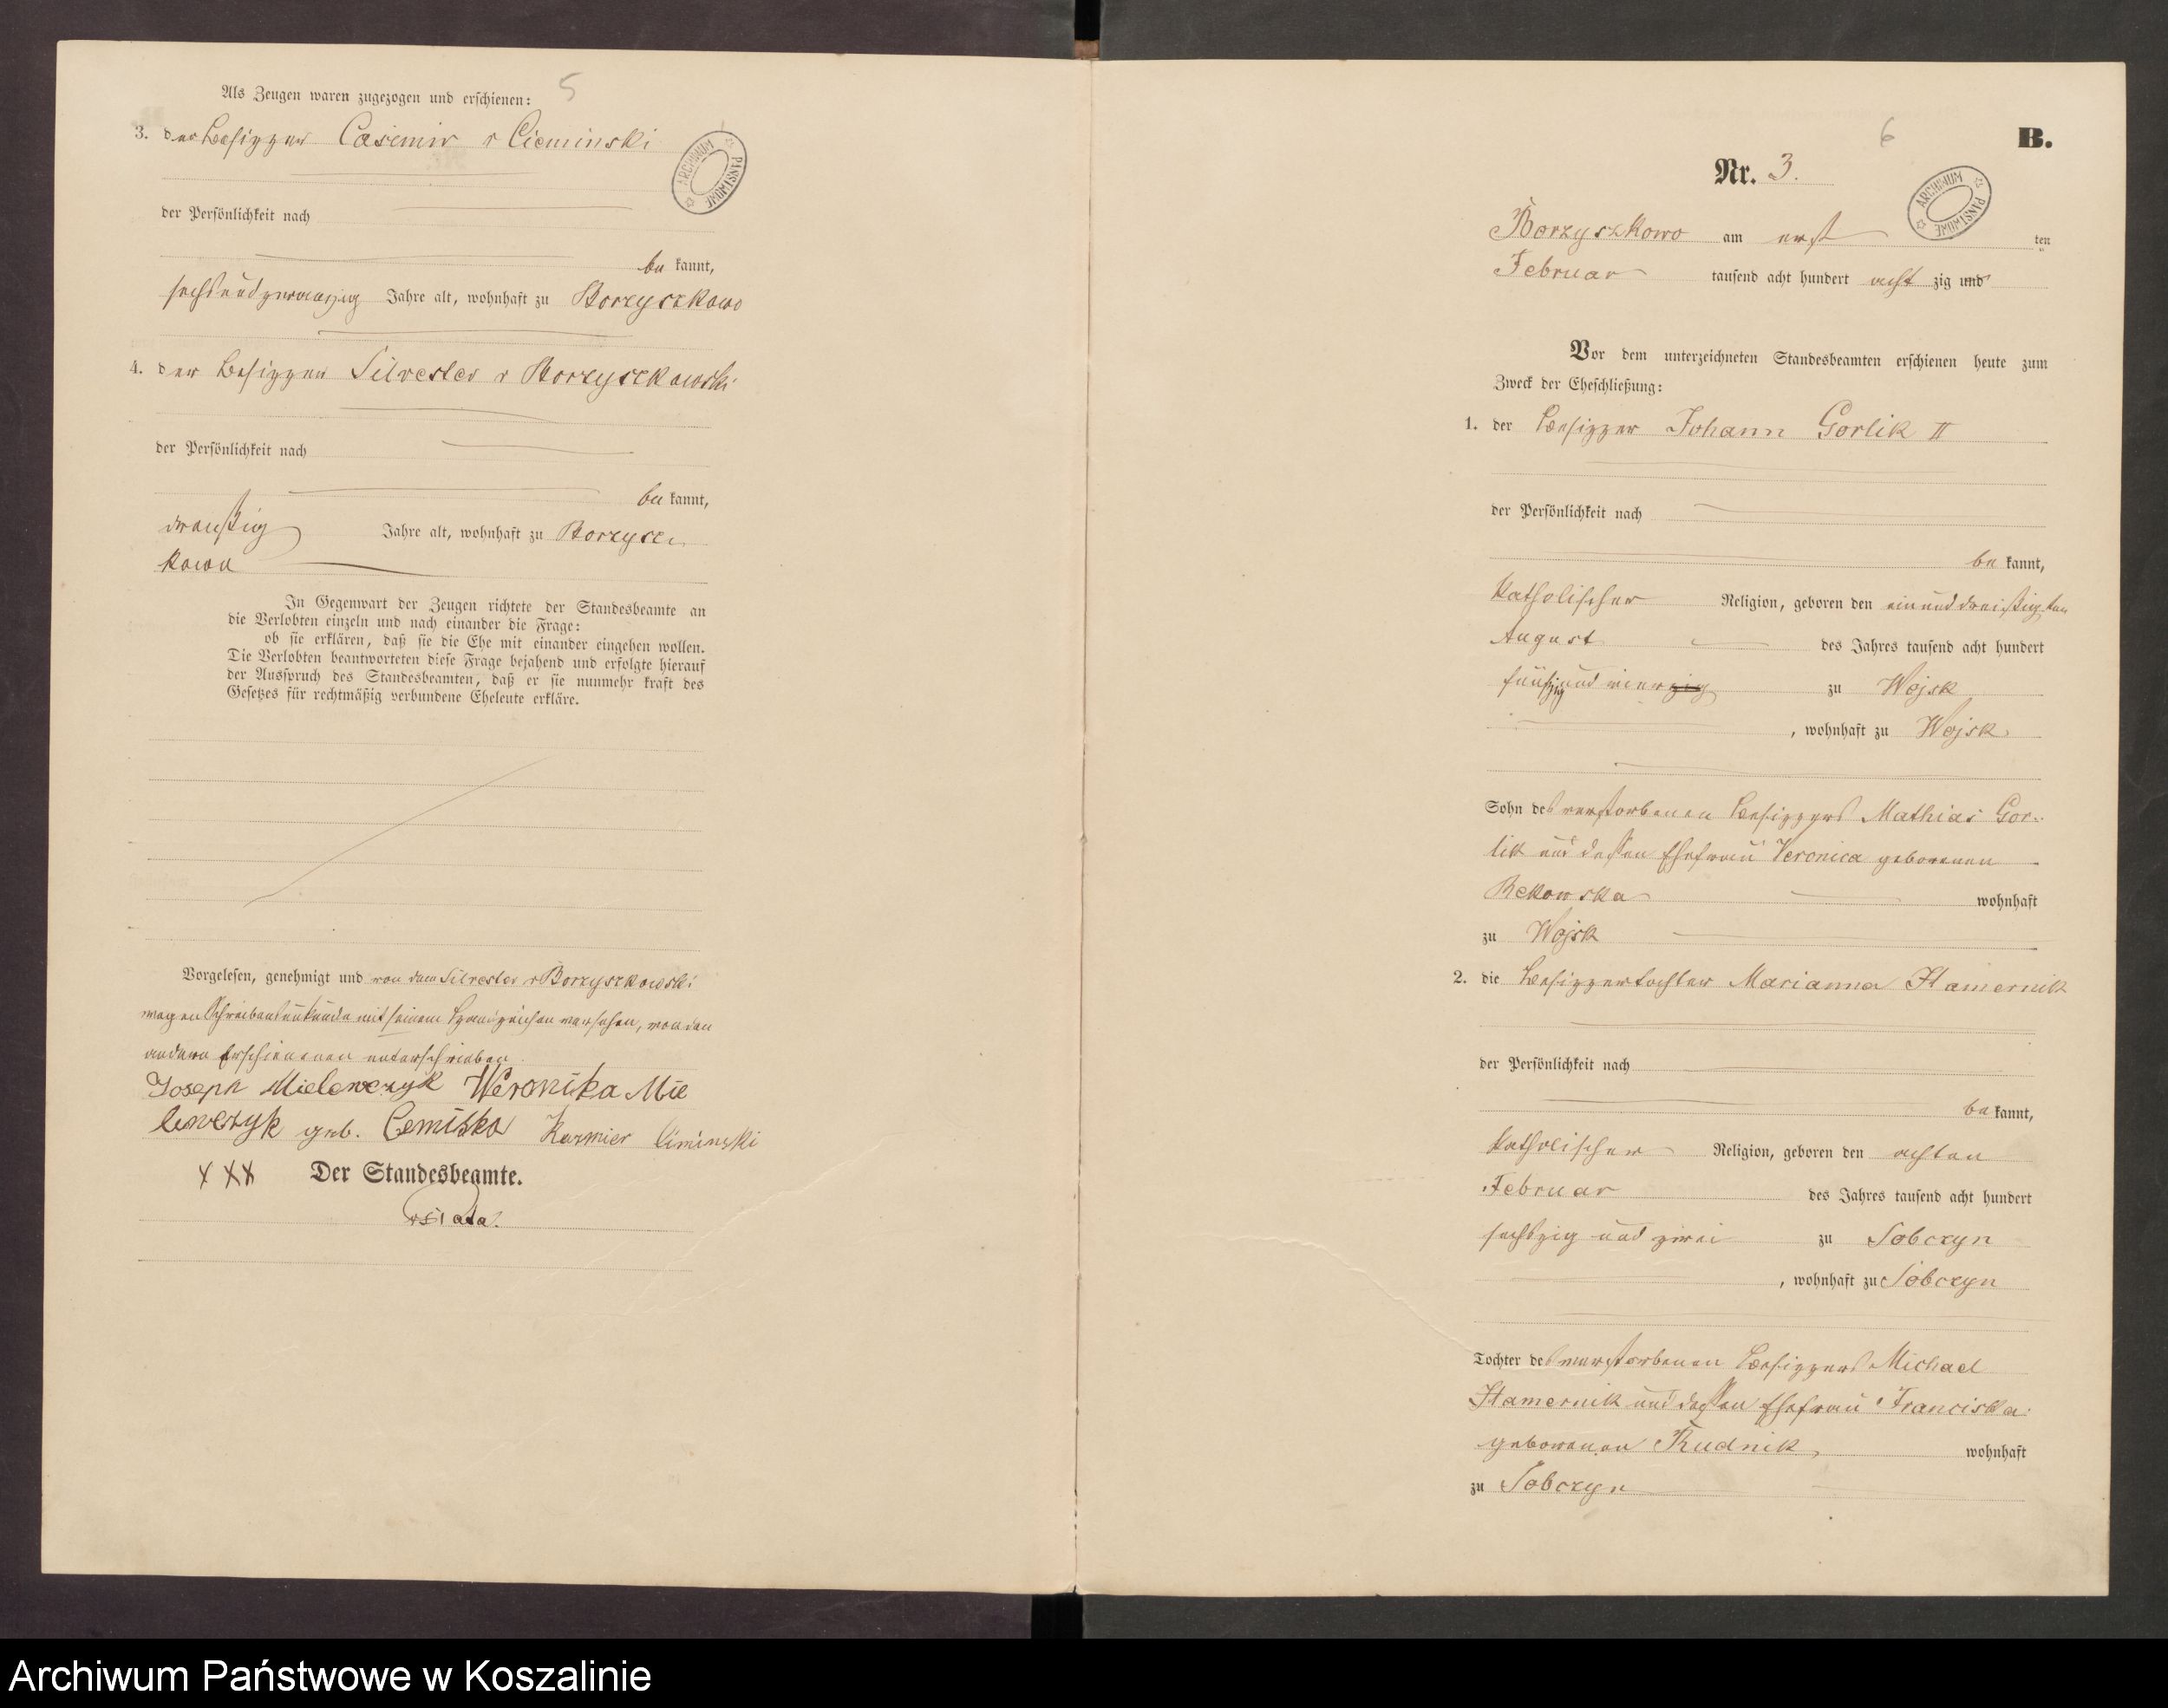 5
Als Zeugen waren zugezogen und erschienen:
3. der Besizzer Casimir v Cieminski
ARCHIWUM PAŃSTWOWE
der Persönlichkeit nach
be kannt,
sechsundzwanzig Jahre alt, wohnhaft zu Borzyszkowo
4. der Besizzer Silvester v Borzyszkowski
der Persönlichkeit nach
be kannt,
dreußig Jahre alt, wohnhaft zu Borzysz
kowo
In Gegenwart der Zeugen richtete der Standesbeamte an
die Verlobten einzeln und nach einander die Frage:
ob sie erklären, daß sie die Ehe mit einander eingehen wollen.
Die Verlobten beantworteten diese Frage bejahend und erfolgte hierauf
der Ausspruch des Standesbeamten, daß er sie nunmehr kraft des
Gesetzes für rechtmäßig verbundene Eheleute erkläre.
Vorgelesen, genehmigt und von dem Silvester v Borzyszkowski
wegen Schreibensunkunde mit seinem Handzeichen versehen, von den
andern Erschienenen unterschrieben.
Joseph Mielewczyk Weronika Mie
lewczyk geb. Cemiska Kazmier Ciminski
XXX Der Standesbeamte.
6
B.
Nr. 3.
ARCHIWUM PAŃSTWOWE
Borzyszkowo am erst ten
Februar tausend acht hundert acht zig und
Vor dem unterzeichneten Standesbeamten erschienen heute zum
Zweck der Eheschließung:
1. der Besizzer Johann Gorlik II
der Persönlichkeit nach
be kannt,
katholischer Religion, geboren den einunddreißigsten
August des Jahres tausend acht hundert
fünfzig und vier zig zu Wojsk
, wohnhaft zu Wojsk,
Sohn des verstorbenen Besizzers Mathias Gor-
lik und dessen Ehefrau Veronica geborenen
Rekowska wohnhaft
zu Wojsk
2. die Besizzertochter Marianna Hamernik
der Persönlichkeit nach
be kannt,
katholischer Religion, geboren den achten
Februar des Jahres tausend acht hundert
sechszig und zwei zu Sobczyn
, wohnhaft zu Sobczyn
Tochter des verstorbenen Besizzers Michael
Hamernik und dessen Ehefrau Franciska
geborenen Rudnik, wohnhaft
zu Sobczyn
Archiwum Państwowe w Koszalinie